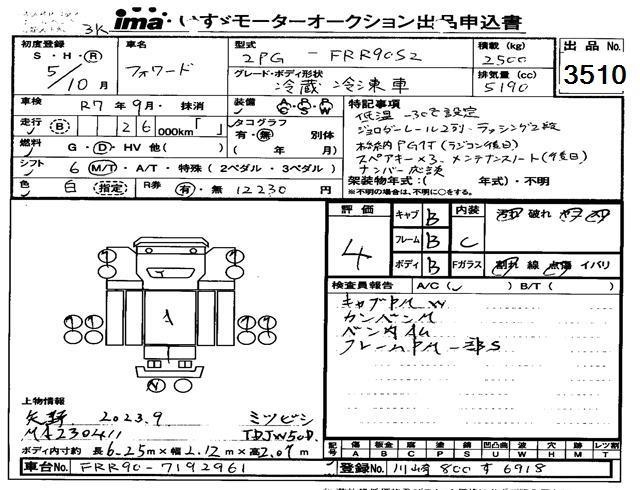 3K
ima いすゞモーターオークション出品申込書
初度登録 S・H・R 5/10月
車名 フォワード
型式 2PG - FRR90S2
積載 (kg) 2500
グレード・ボディ形状 冷蔵冷凍車
排気量 (cc) 5190
出品 No. 3510
車検 R7年9月・抹消
装備 A/C P/S P/W S/R
走行 B 26 000km「 」
タコグラフ 有・無 別体 ( 年 月)
燃料 G・D・HV 他( )
シフト 6 M/T・A/T・特殊(2ペダル・3ペダル)
色 白 (指定) R券 有・無 12230円
特記事項
低温 -30℃設定
ジョロダーレール2列・ラッシング2段
スペアキー×3、メンテナンスノート(後日)
架装物年式:( 年式)・不明
※不明の場合は、不明に○をする。
評価 4
キャブ B 内装 汚れ 破れ
フレーム B C
ボディ B Fガラス 割れ 線 点傷 イバリ
検査員報告 A/C( ) B/T( )
キャブPM W
カンバンM
バン内AU
フレームPM一部S
A
W
上物情報
矢野 2023.9 ミツビシ
MA230411 TDJW50D
ボディ内寸約 長6.25m×幅2.12m×高2.07m
記号 傷A 板金B 腐C 塗P 錆S 凹凸曲U 波W 穴H 跡M レツ割T
車台No. FRR90-7192961
登録No. 川崎 800 す 6918